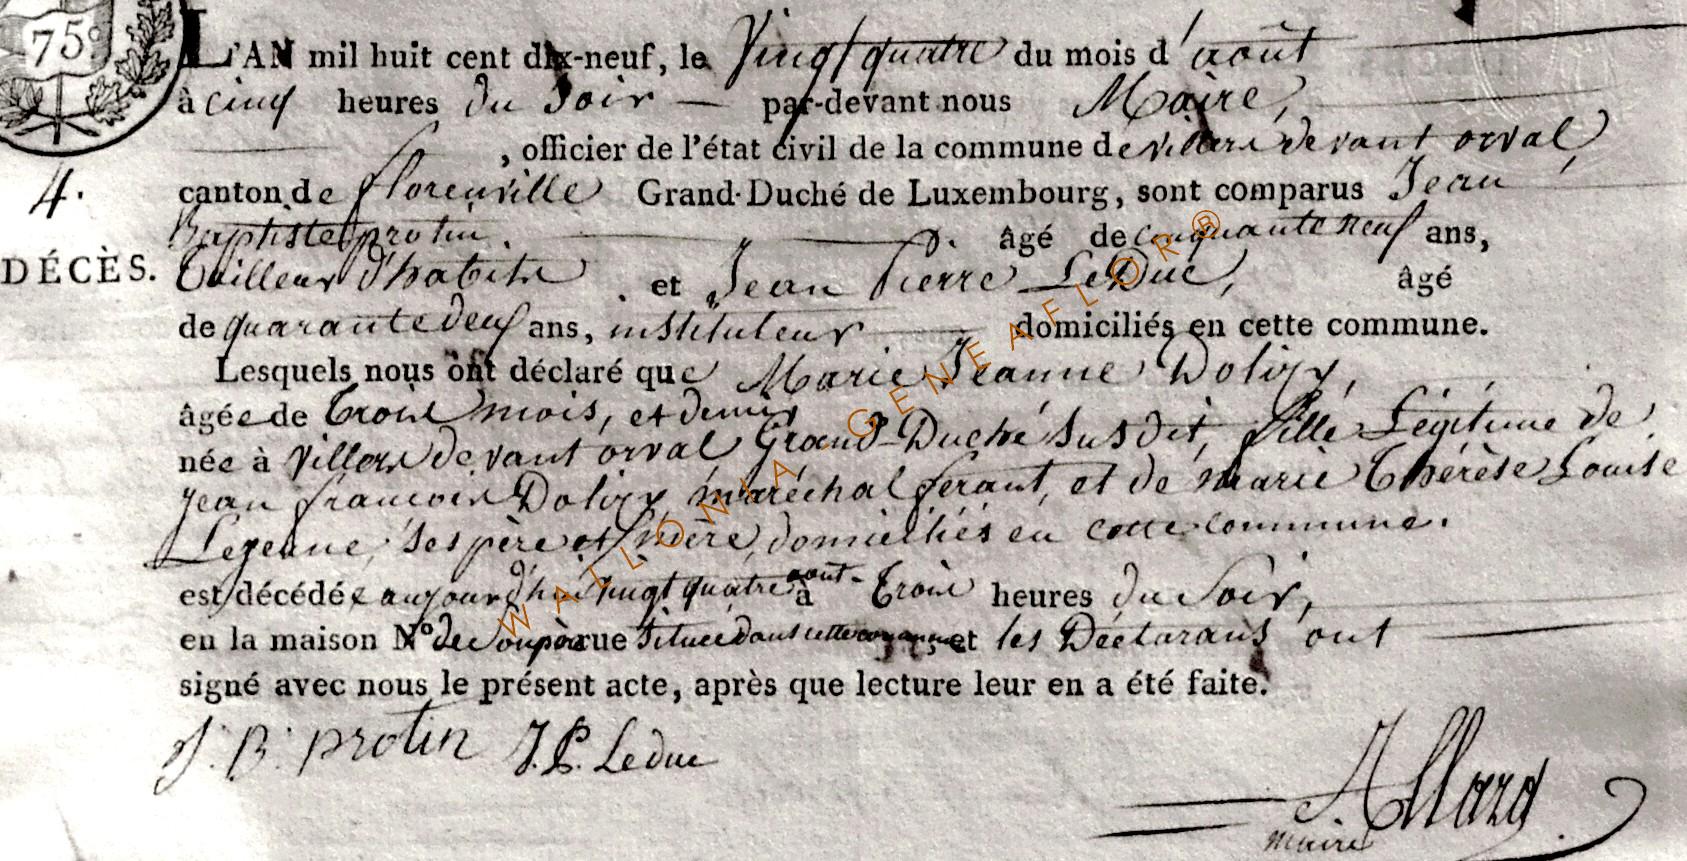 75c.
L'AN mil huit cent dix-neuf, le Vingt quatre du mois d'août
à cinq heures du Soir — par-devant nous Maire,
, officier de l'état civil de la commune de villers devant orval,
4. canton de florenville Grand-Duché de Luxembourg, sont comparus Jean
Baptiste protin. âgé de cinquante neuf ans,
DÉCÈS. Tailleur d'habits et Jean Pierre LeDuc, âgé
de quarante deux ans, instituteur domiciliés en cette commune.
Lesquels nous ont déclaré que Marie Jeanne Dolizy,
âgée de Trois mois, et demis
née à Villers devant orval Grand-Duché susdit, fille Légitime de
jean francois Dolizy maréchal ferant, et de marie Thérèse Louise
Lejeune, ses père et mère, domiciliés en cette commune.
est décédée aujourd'hui vingt quatre août à Trois heures du Soir,
en la maison N° de rue située dans cette commune, et les Déclarans ont
signé avec nous le présent acte, après que lecture leur en a été faite.
J. B. protin J. P. Leduc
Allard
maire
WALLONIA - GENEAFLOR®